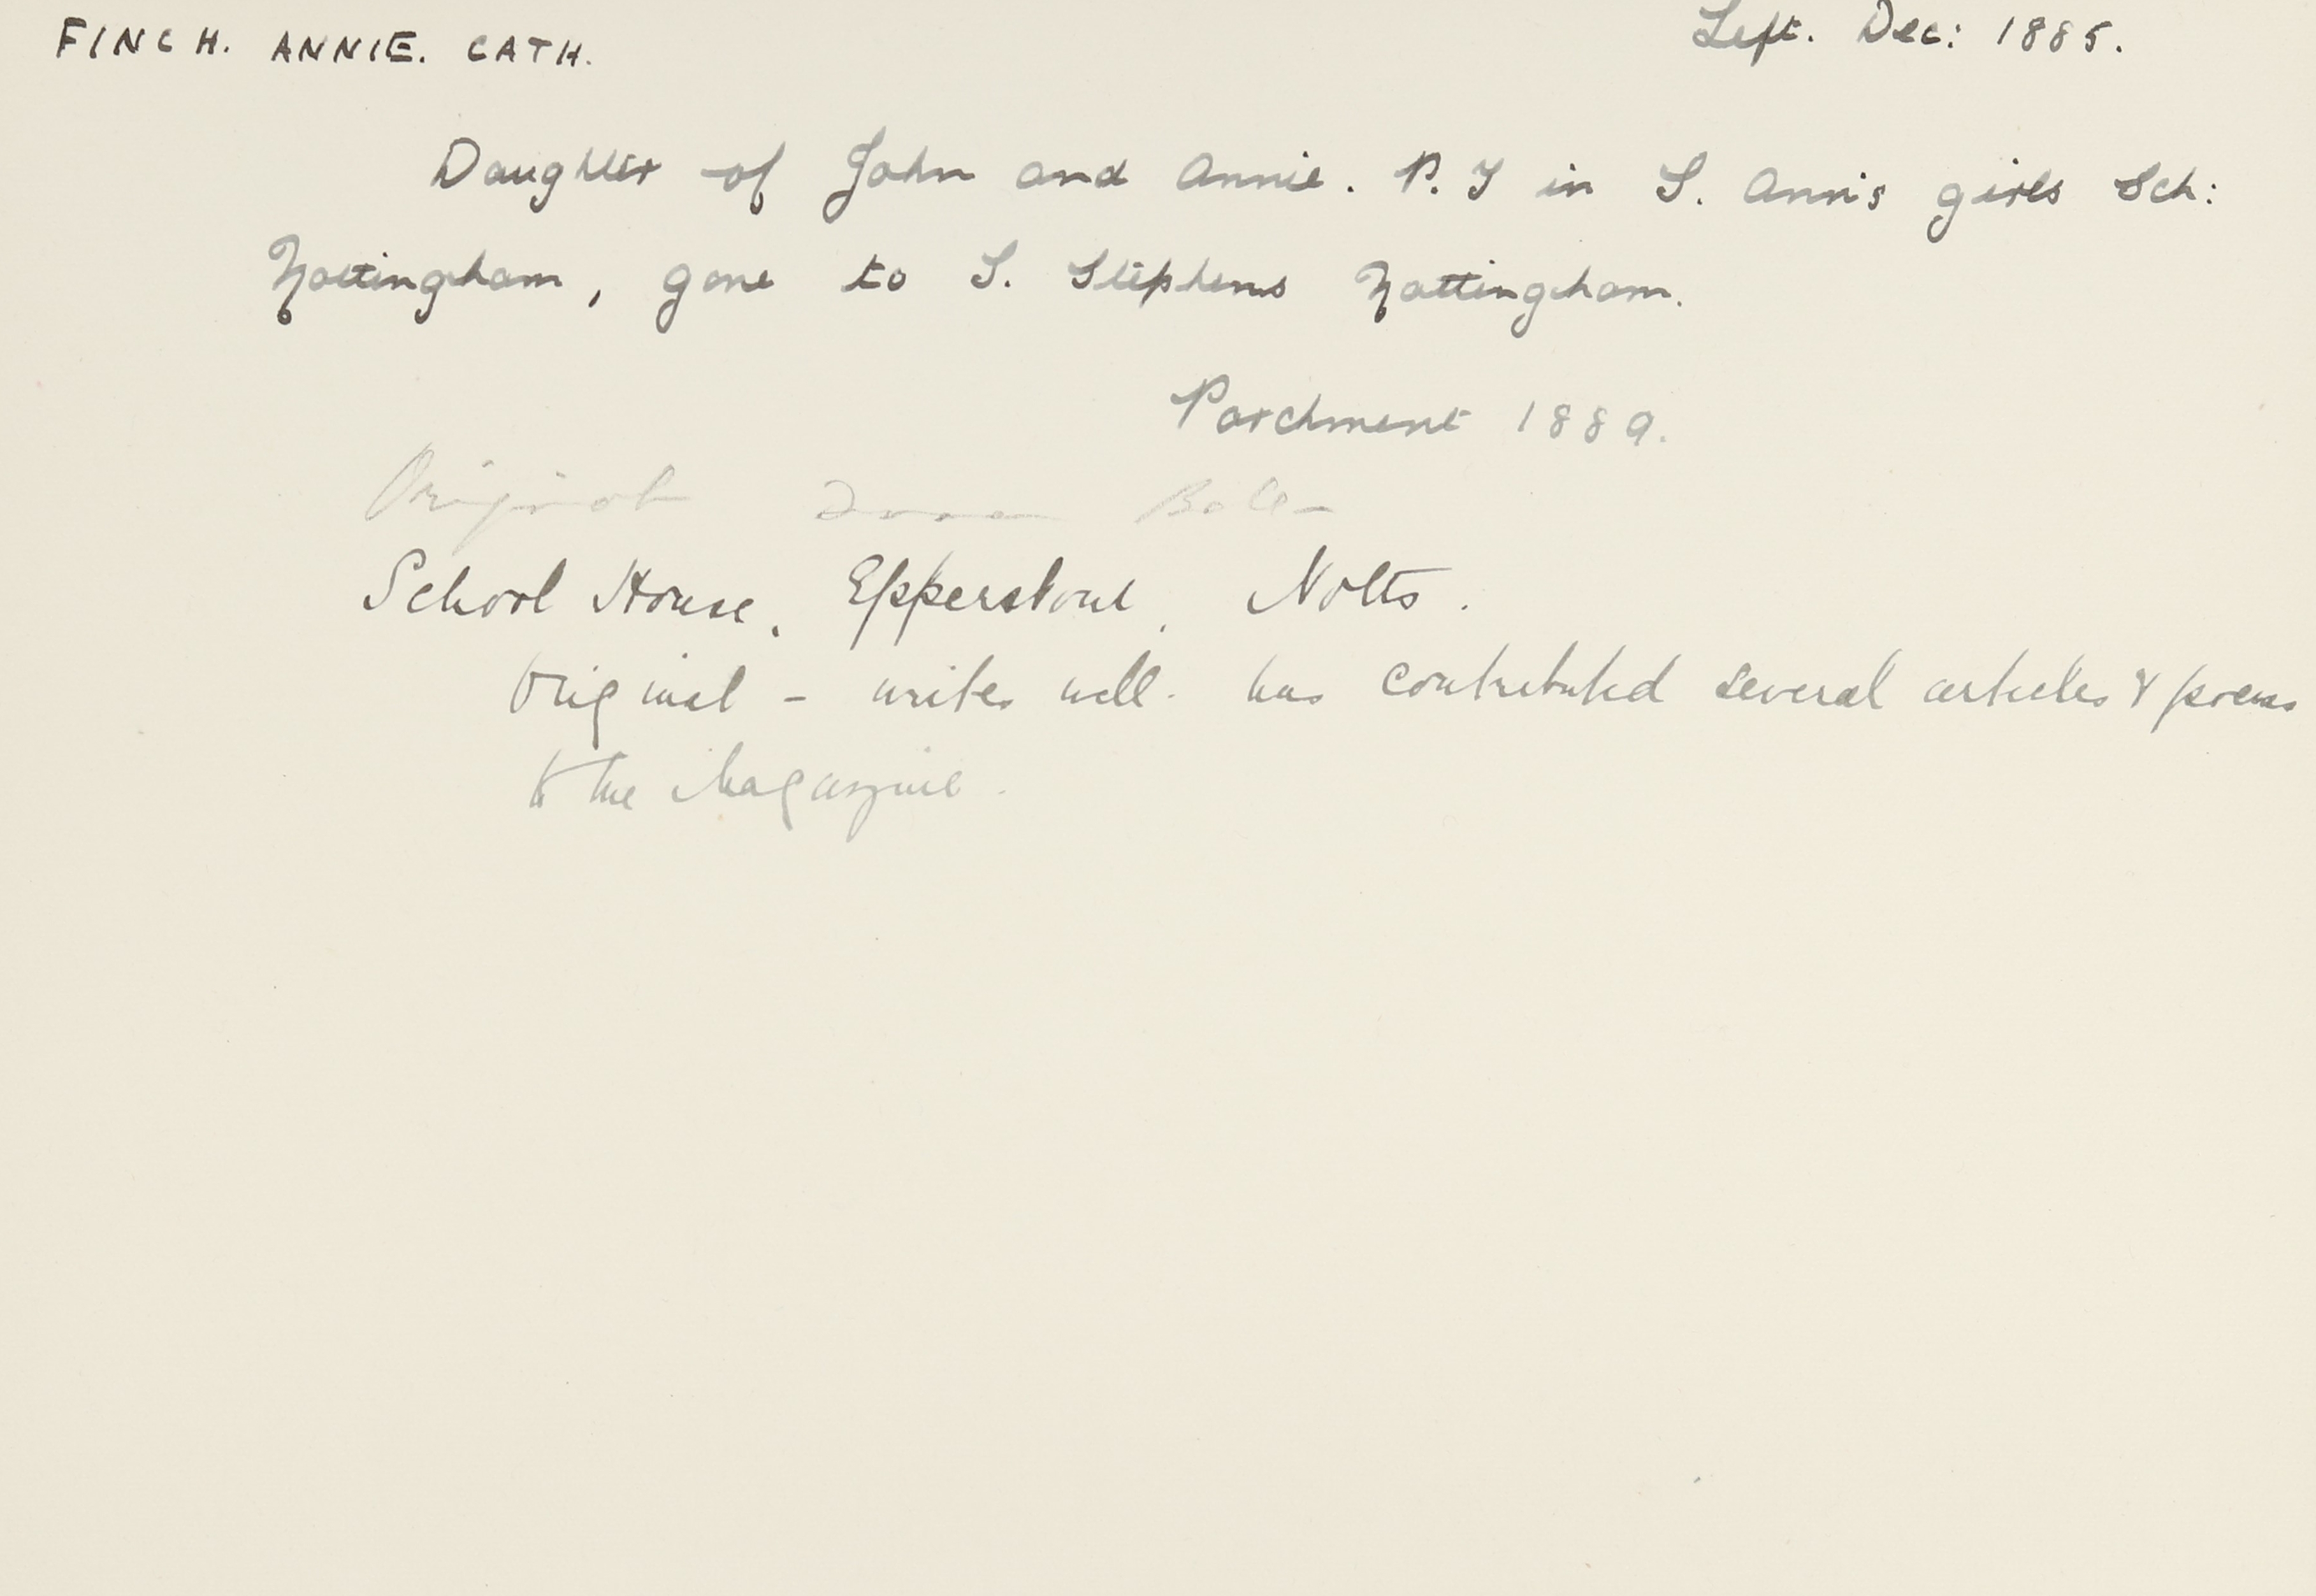 FINCH. ANNIE. CATH. Left. Dec: 1885.
Daughter of John and Annie. P.T in S. Ann's girls Sch:
Nottingham, gone to S. Stephens Nottingham.
Parchment 1889.
Original
School House, Epperstone, Notts.
Original - writes well. has contributed several articles & poems
to the Magazine.